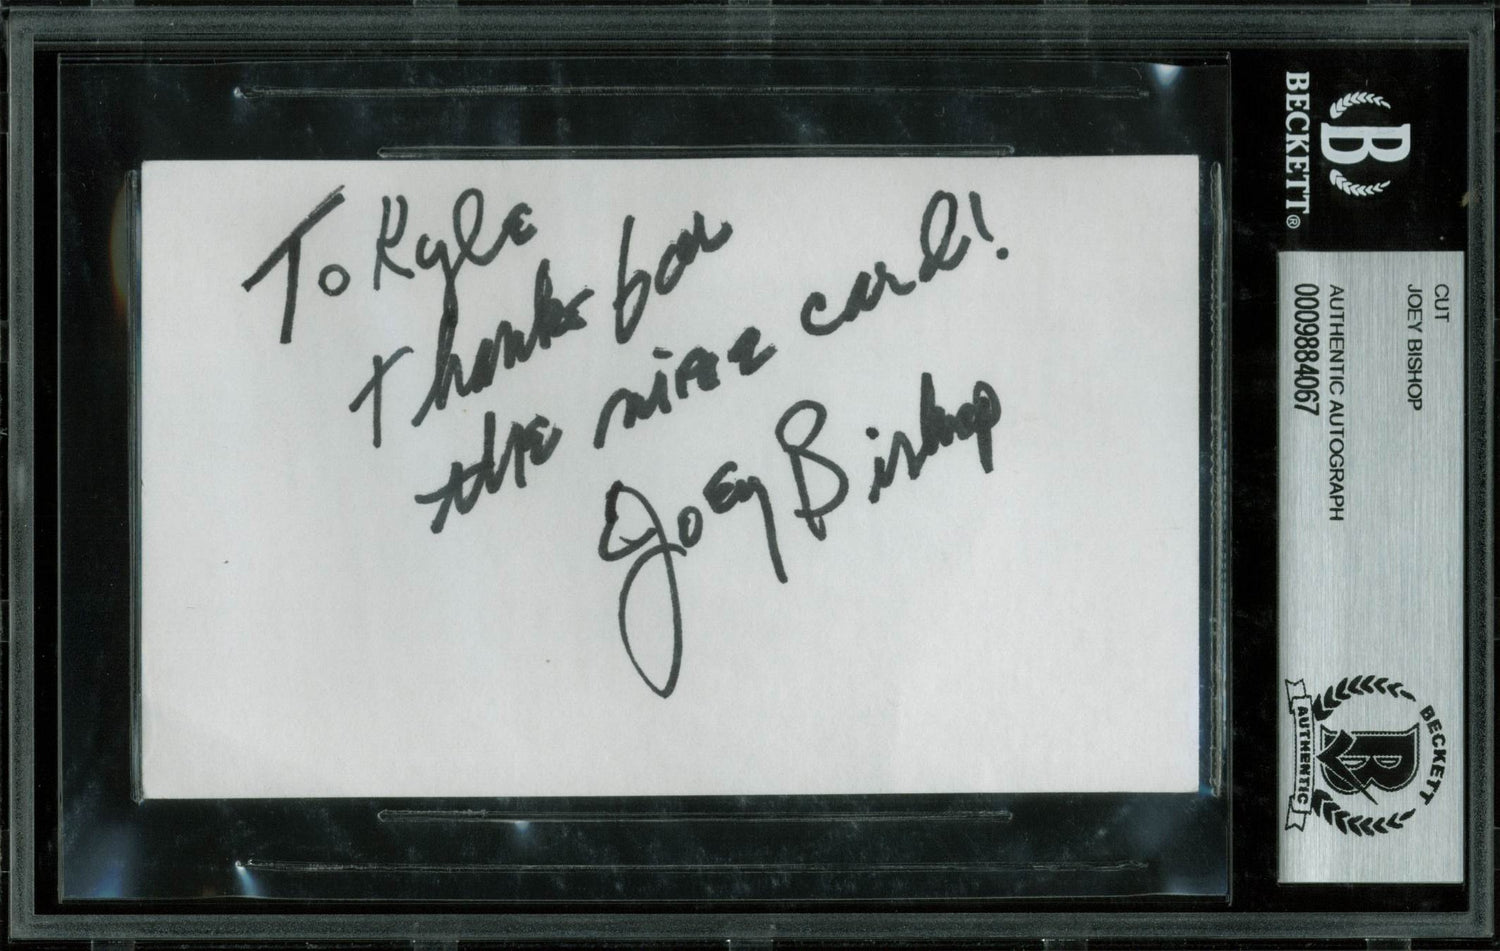 To Kyle
thanks for
the nice card!
Joey Bishop
BECKETT®
B
CUT
JOEY BISHOP
AUTHENTIC AUTOGRAPH
0009884067
BECKETT
B
AUTHENTIC